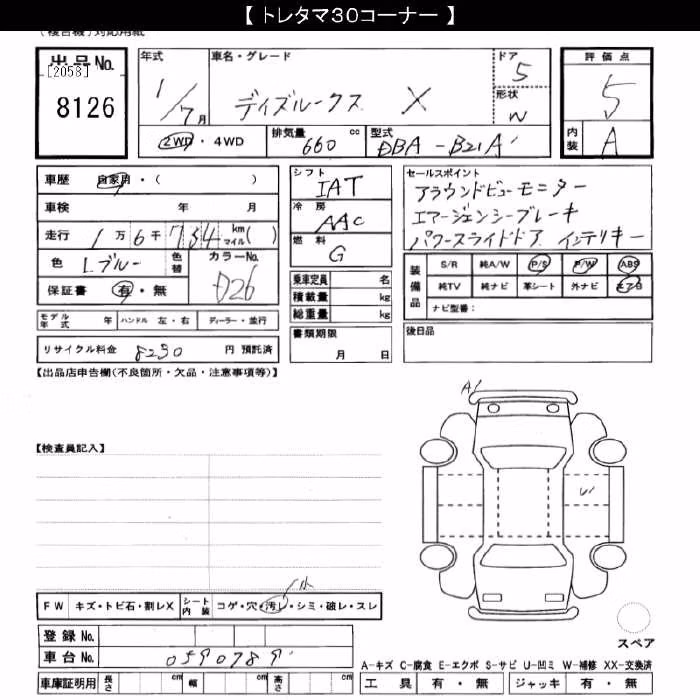 【 トレタマ３０コーナー 】
出品No. 年式 車名・グレード ドア 5 評価点
[2058] 8126 1/7月 デイズルークス X 形状 W 5
2WD ・ 4WD 排気量 660 cc 型式 DBA - B21A 内装 A
車歴 自家用 ・ ( ) シフト IAT セールスポイント
車検 年 月 冷房 AAC アラウンドビューモニター
走行 1万6千734 km マイル ( ) 燃料 G エマージェンシーブレーキ
色 Lブルー 色替 カラーNo. D26 パワースライドドア インテリキー
保証書 有 ・ 無 乗車定員 名 装備品 S/R 純A/W P/S P/W ABS
積載量 kg 純TV 純ナビ 革シート 外ナビ エアB
総重量 kg ナビ型番：
モデル年式 年 ハンドル 左・右 ディーラー・並行 書類期限 月 日 後日品
リサイクル料金 8230 円 預託済
【出品店申告欄(不良箇所・欠品・注意事項等)】
A1
【検査員記入】
U
小
FW キズ・トビ石・割レX シート内装 コゲ・穴・汚レ・シミ・破レ・スレ
登録No. スペア
車台No. 0590789
A－キズ C－腐食 E－エクボ S－サビ U－凹ミ W－補修 XX－交換済
車庫証明用 長さ cm 幅 cm 高さ cm 工具 有 ・ 無 ジャッキ 有 ・ 無